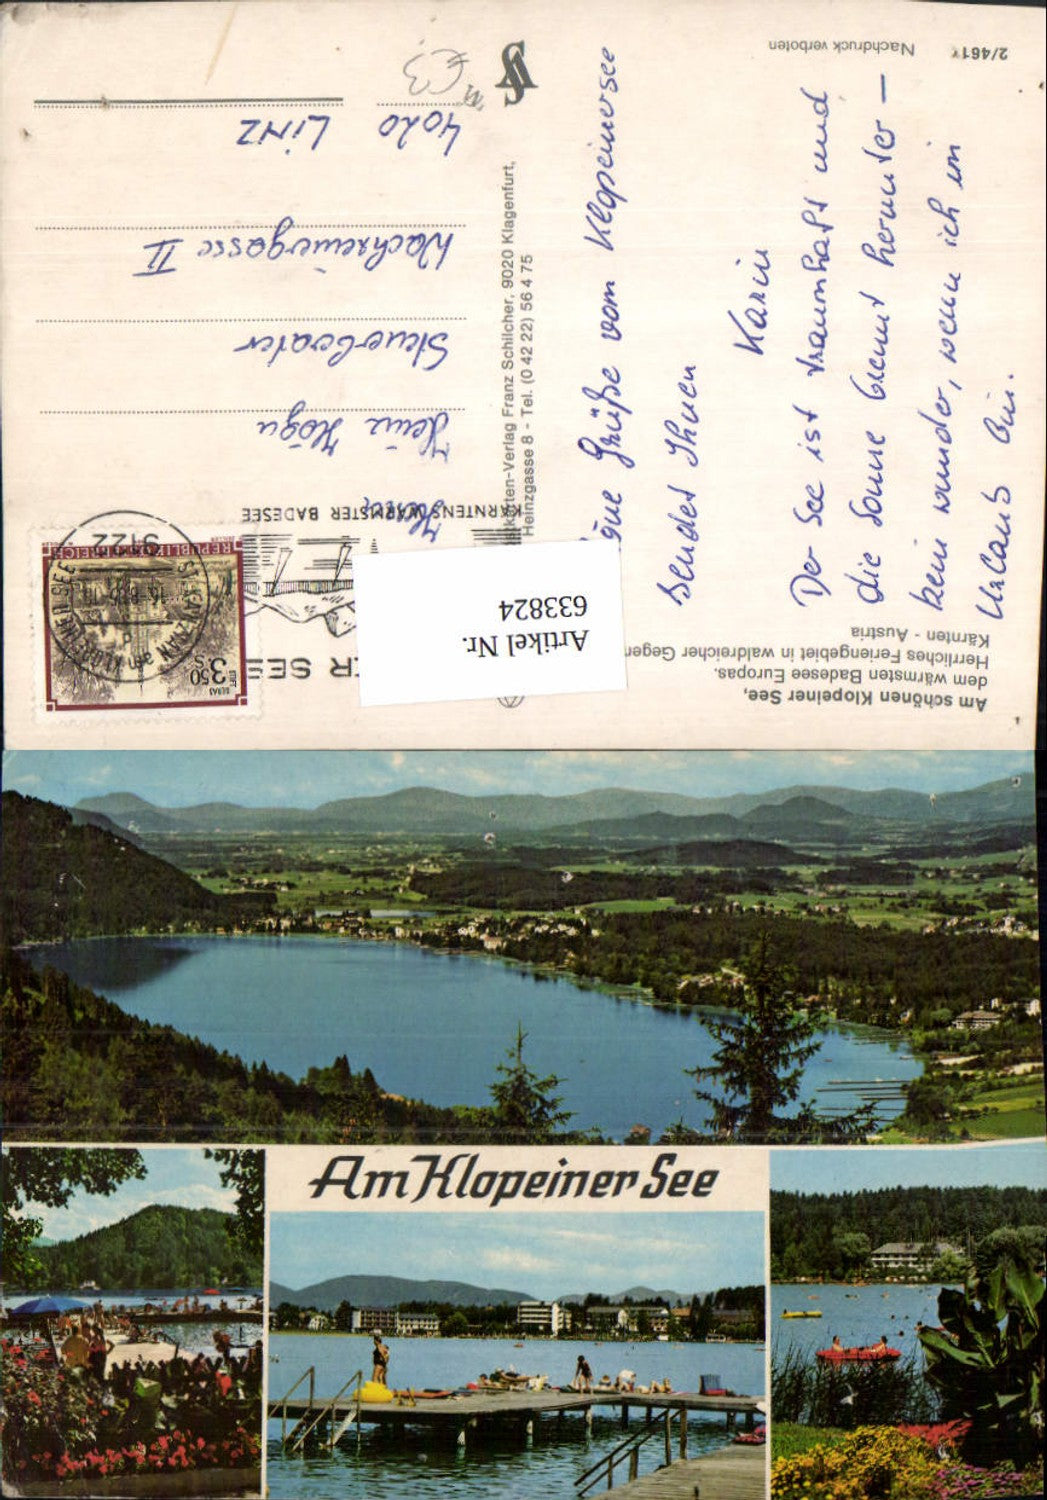 Am schönen Klopeiner See,
dem wärmsten Badesee Europas.
Herrliches Feriengebiet in waldreicher
Kärnten - Austria
2/461
Nachdruck verboten
Grüße vom Klopeinersee
sendet Ihnen
Karin
Der See ist traumhaft und
die Sonne brennt herunter —
kein wunder, wenn ich im
Urlaub bin.
Verlag Franz Schilcher, 9020 Klagenfurt,
Heinzgasse 8 - Tel. (0 42 22) 56 4 75
Artikel Nr.
633824
KÄRNTENS WÄRMSTER BADESEE
9122
ST. KANZIAN
am KLOPEINER SEE
REPUBLIK ÖSTERREICH
S 3.50
STIFT
GERAS
Herrn
Heinz
Steuerberater
4020 LINZ
€3
Am Klopeiner See